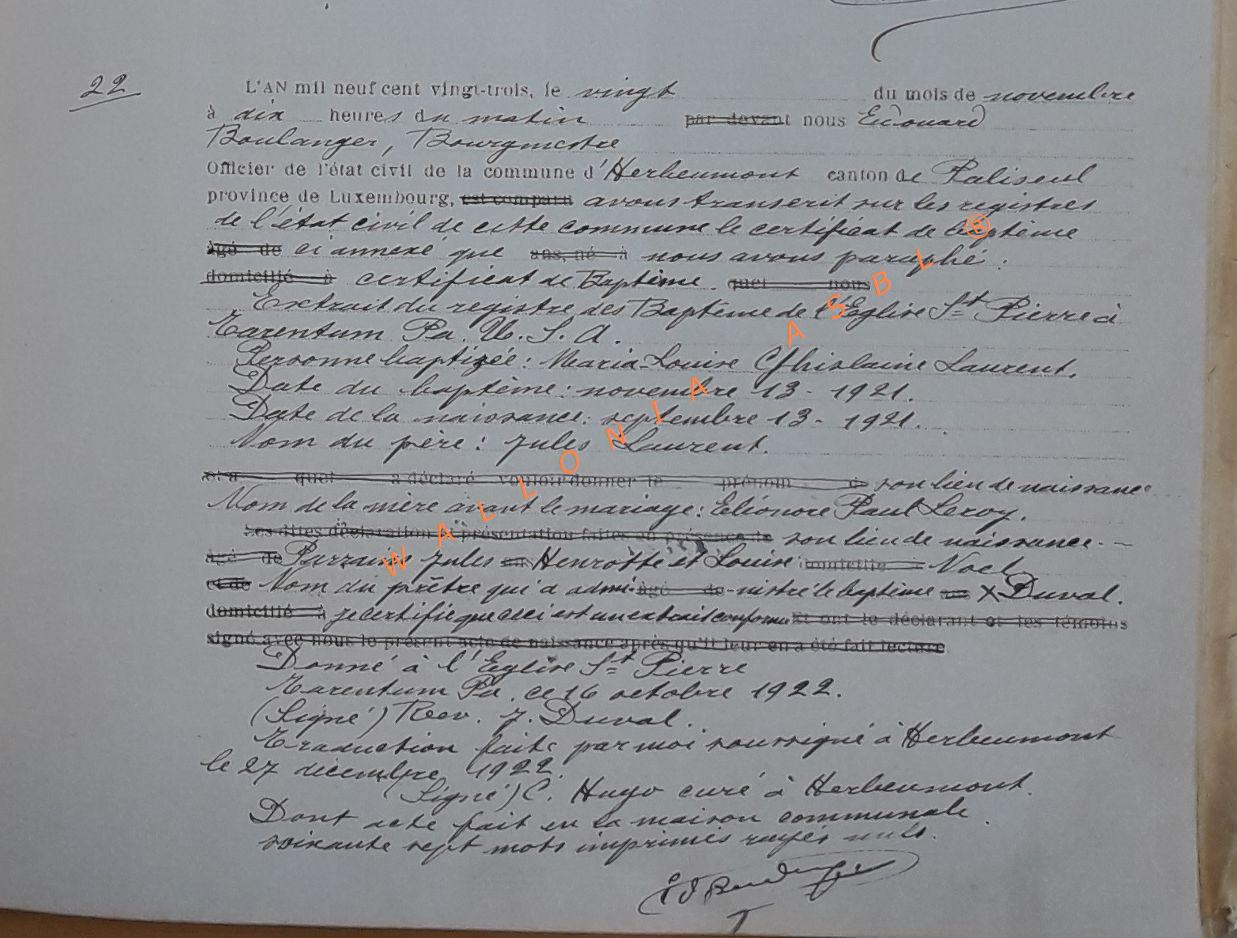 22
L'AN mil neuf cent vingt-trois, le vingt du mois de novembre
à dix heures du matin par devant nous Edouard
Boulanger, Bourgmestre
Officier de l'état civil de la commune d'Herbeumont canton de Paliseul
province de Luxembourg, est comparu avons transcrit sur les registres
de l'état civil de cette commune le certificat de baptême
âgé de ci annexé que ans, né à nous avons paraphé :
domicilié à certificat de Baptême quel nous
Extrait du registre des Baptême de l'Eglise St Pierre à
Tarentum Pa. U. S. A.
Personne baptizée : Maria Louise Ghislaine Laurent.
Date du baptême : novembre 13 - 1921.
Date de la naissance : septembre 13 - 1921.
Nom du père : Jules Laurent.
et a quel a déclaré vouloir donner le prénom de son lieu de naissance
Nom de la mère avant le mariage : Eléonore Paul Leroy.
Les dites déclaration et présentation faites en présence de son lieu de naissance. -
âgé de Parrains Jules Henrotte et Louise domicilié Noel
et de Nom du prêtre qui a admi- âgé de -nistré le baptême X Duval.
domicilié à je certifie que ceci est un extrait conforme Et ont le déclarant et les témoins
signé avec nous le présent acte de naissance après qu'il leur en a été fait lecture
Donné à l'Eglise St Pierre
Tarentum Pa. ce 16 octobre 1922.
(Signé) Rev. J. Duval.
Traduction faite par moi soussigné à Herbeumont
le 27 décembre 1922.
(Signé) C. Hugo curé à Herbeumont.
Dont acte fait en la maison communale.
soixante sept mots imprimés rayés nuls.
WALLONIA ASBL ®